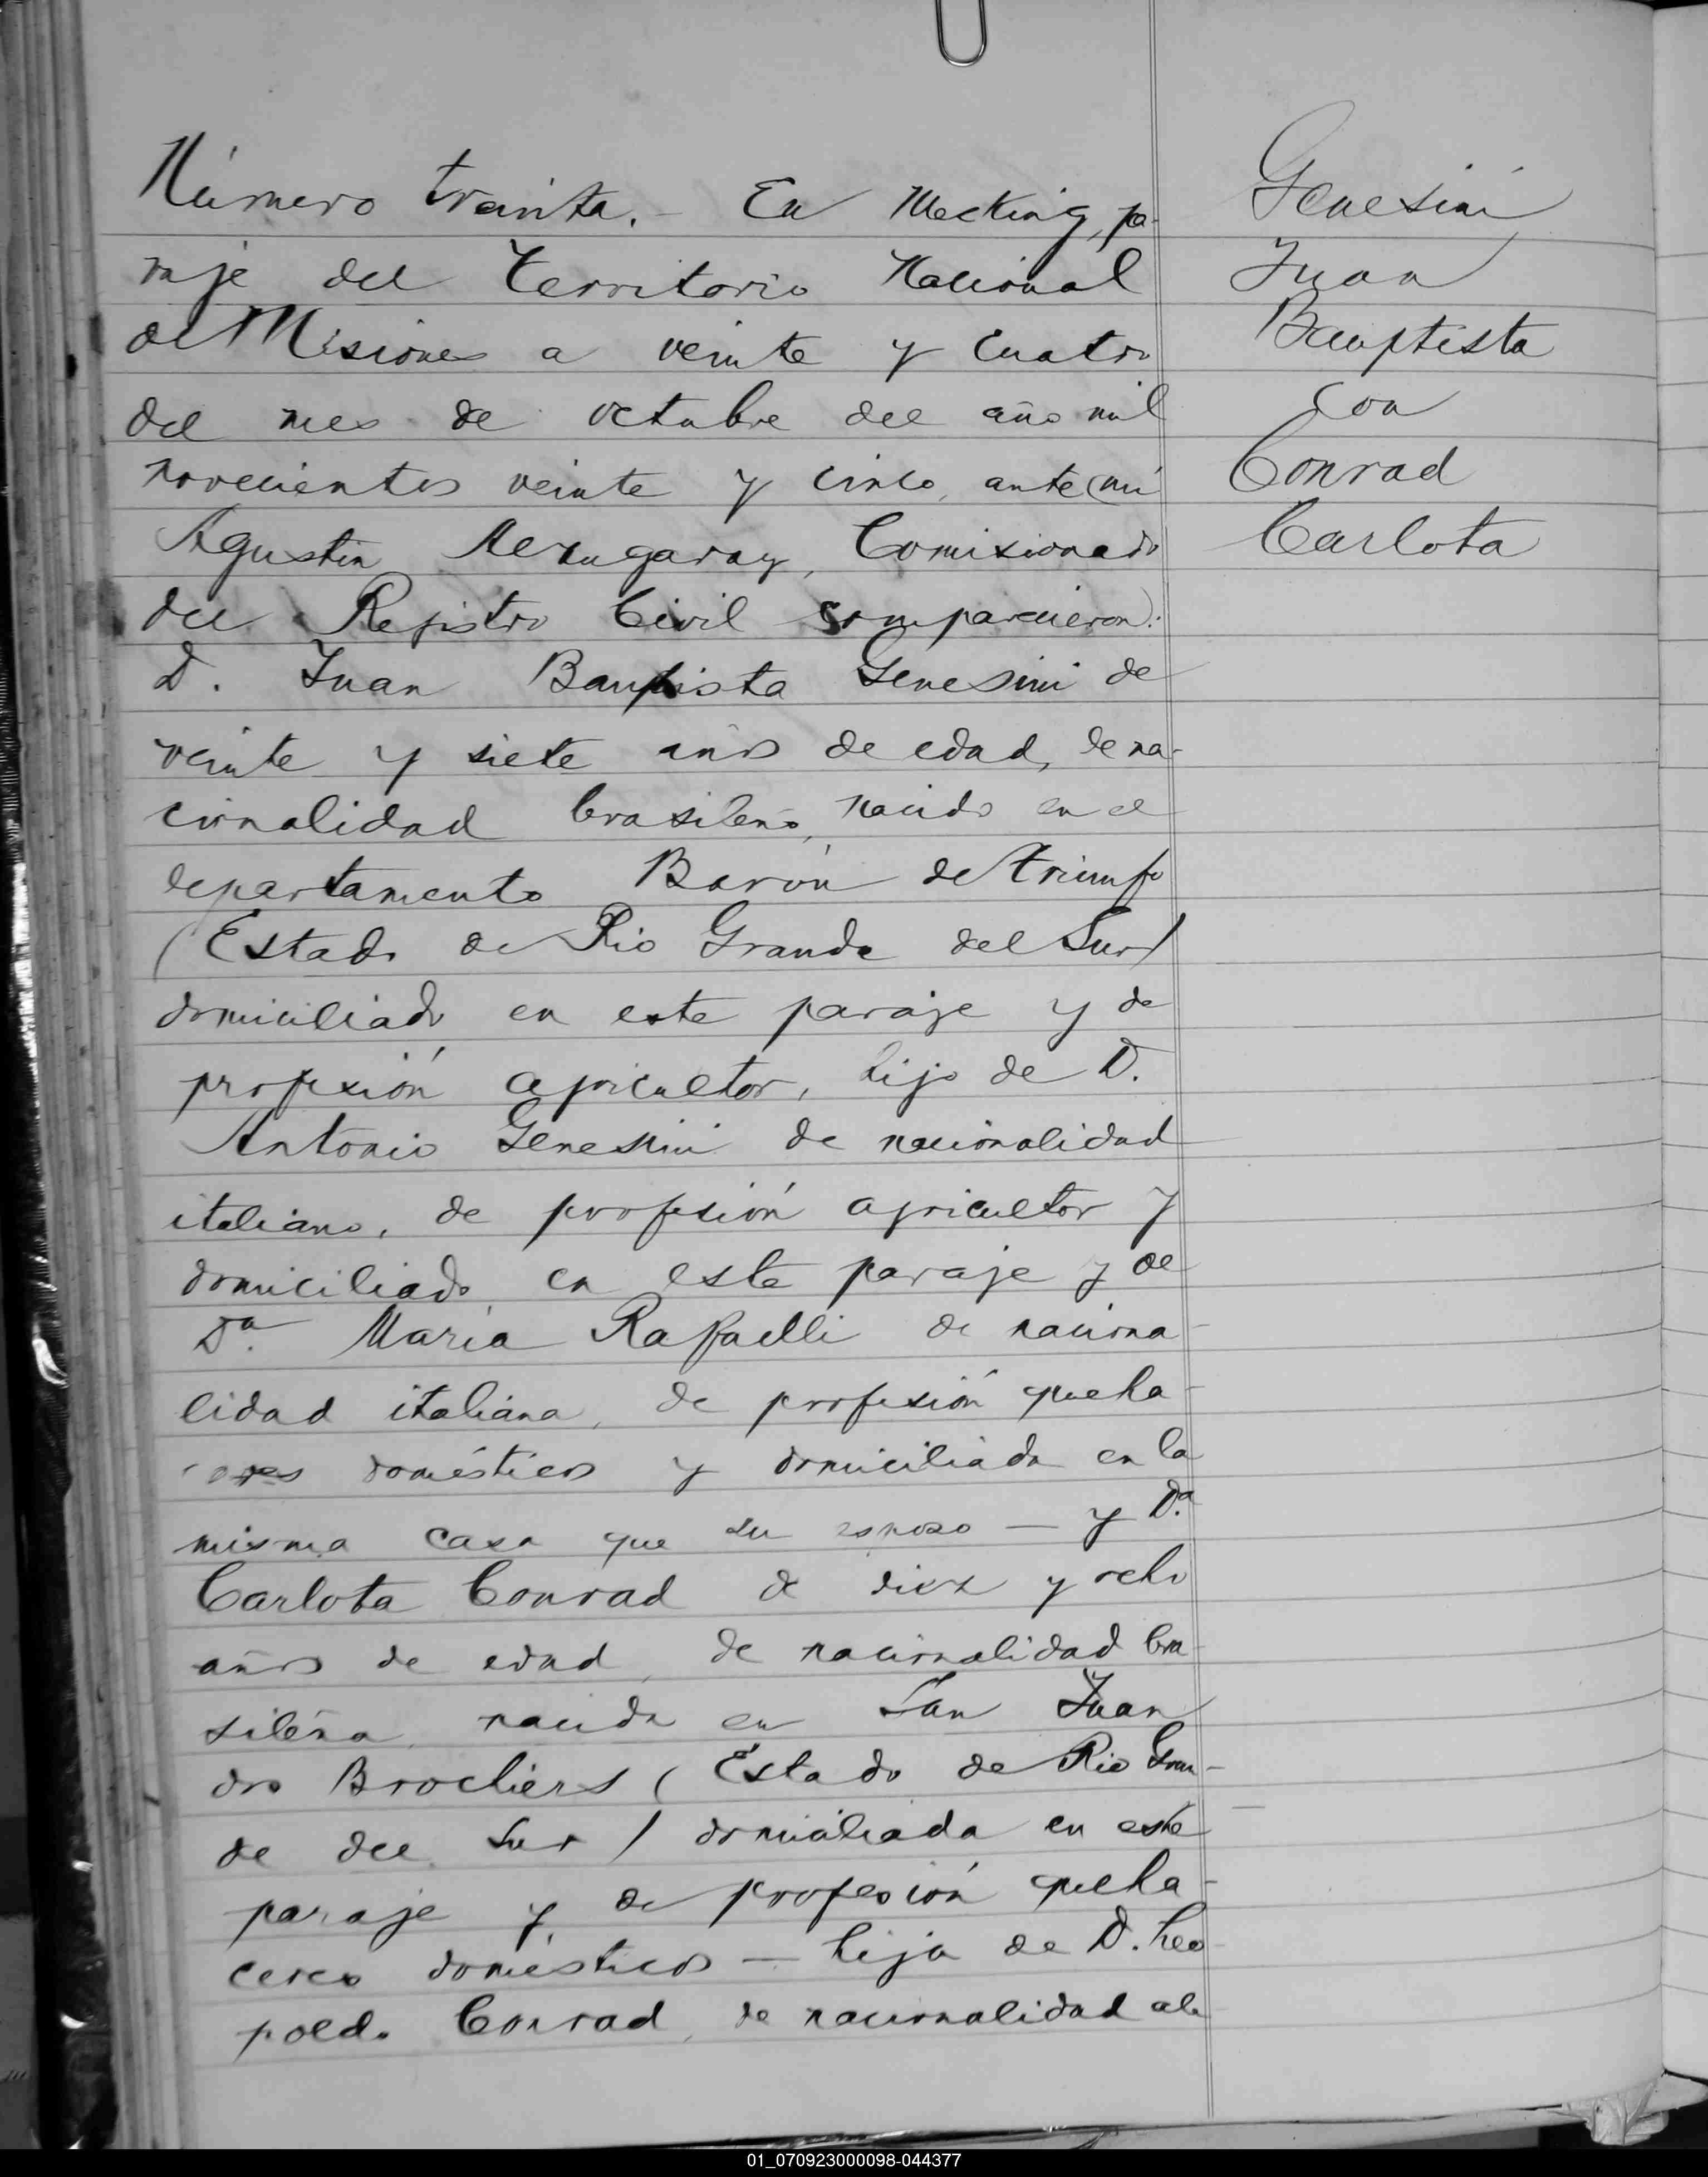 Número treinta.- En Mecking, pa-
raje del Territorio Nacional
de Misiones a veinte y cuatro
del mes de octubre del año mil
novecientos veinte y cinco, ante mi
Agustin Comisionado
del Registro Civil comparecieron:
D. Juan Bautista Genesini de
veinte y siete años de edad, de na-
cionalidad brasileño, nacido en el
departamento Barón de Triumfo
(Estado de Rio Grande del Sur)
domiciliado en este paraje y de
profesión agricultor, hijo de D.
Antonio Genesini de nacionalidad
italiano, de profesión agricultor y
domiciliado en este paraje y de
Da. María Rafaelli de naciona-
lidad italiana, de profesión queha-
ceres domésticos y domiciliada en la
misma casa que su esposo — y Da.
Carlota Conrad de diez y ocho
años de edad, de nacionalidad bra-
sileña, nacida en San Juan
do Brochiers (Estado de Rio Gran-
de del Sur) domiciliada en este
paraje y de profesión queha-
ceres domésticos — hija de D. Leo-
poldo Conrad, de nacionalidad ale
Genesini
Juan
Bauptista
con
Conrad
Carlota
01_070923000098-044377